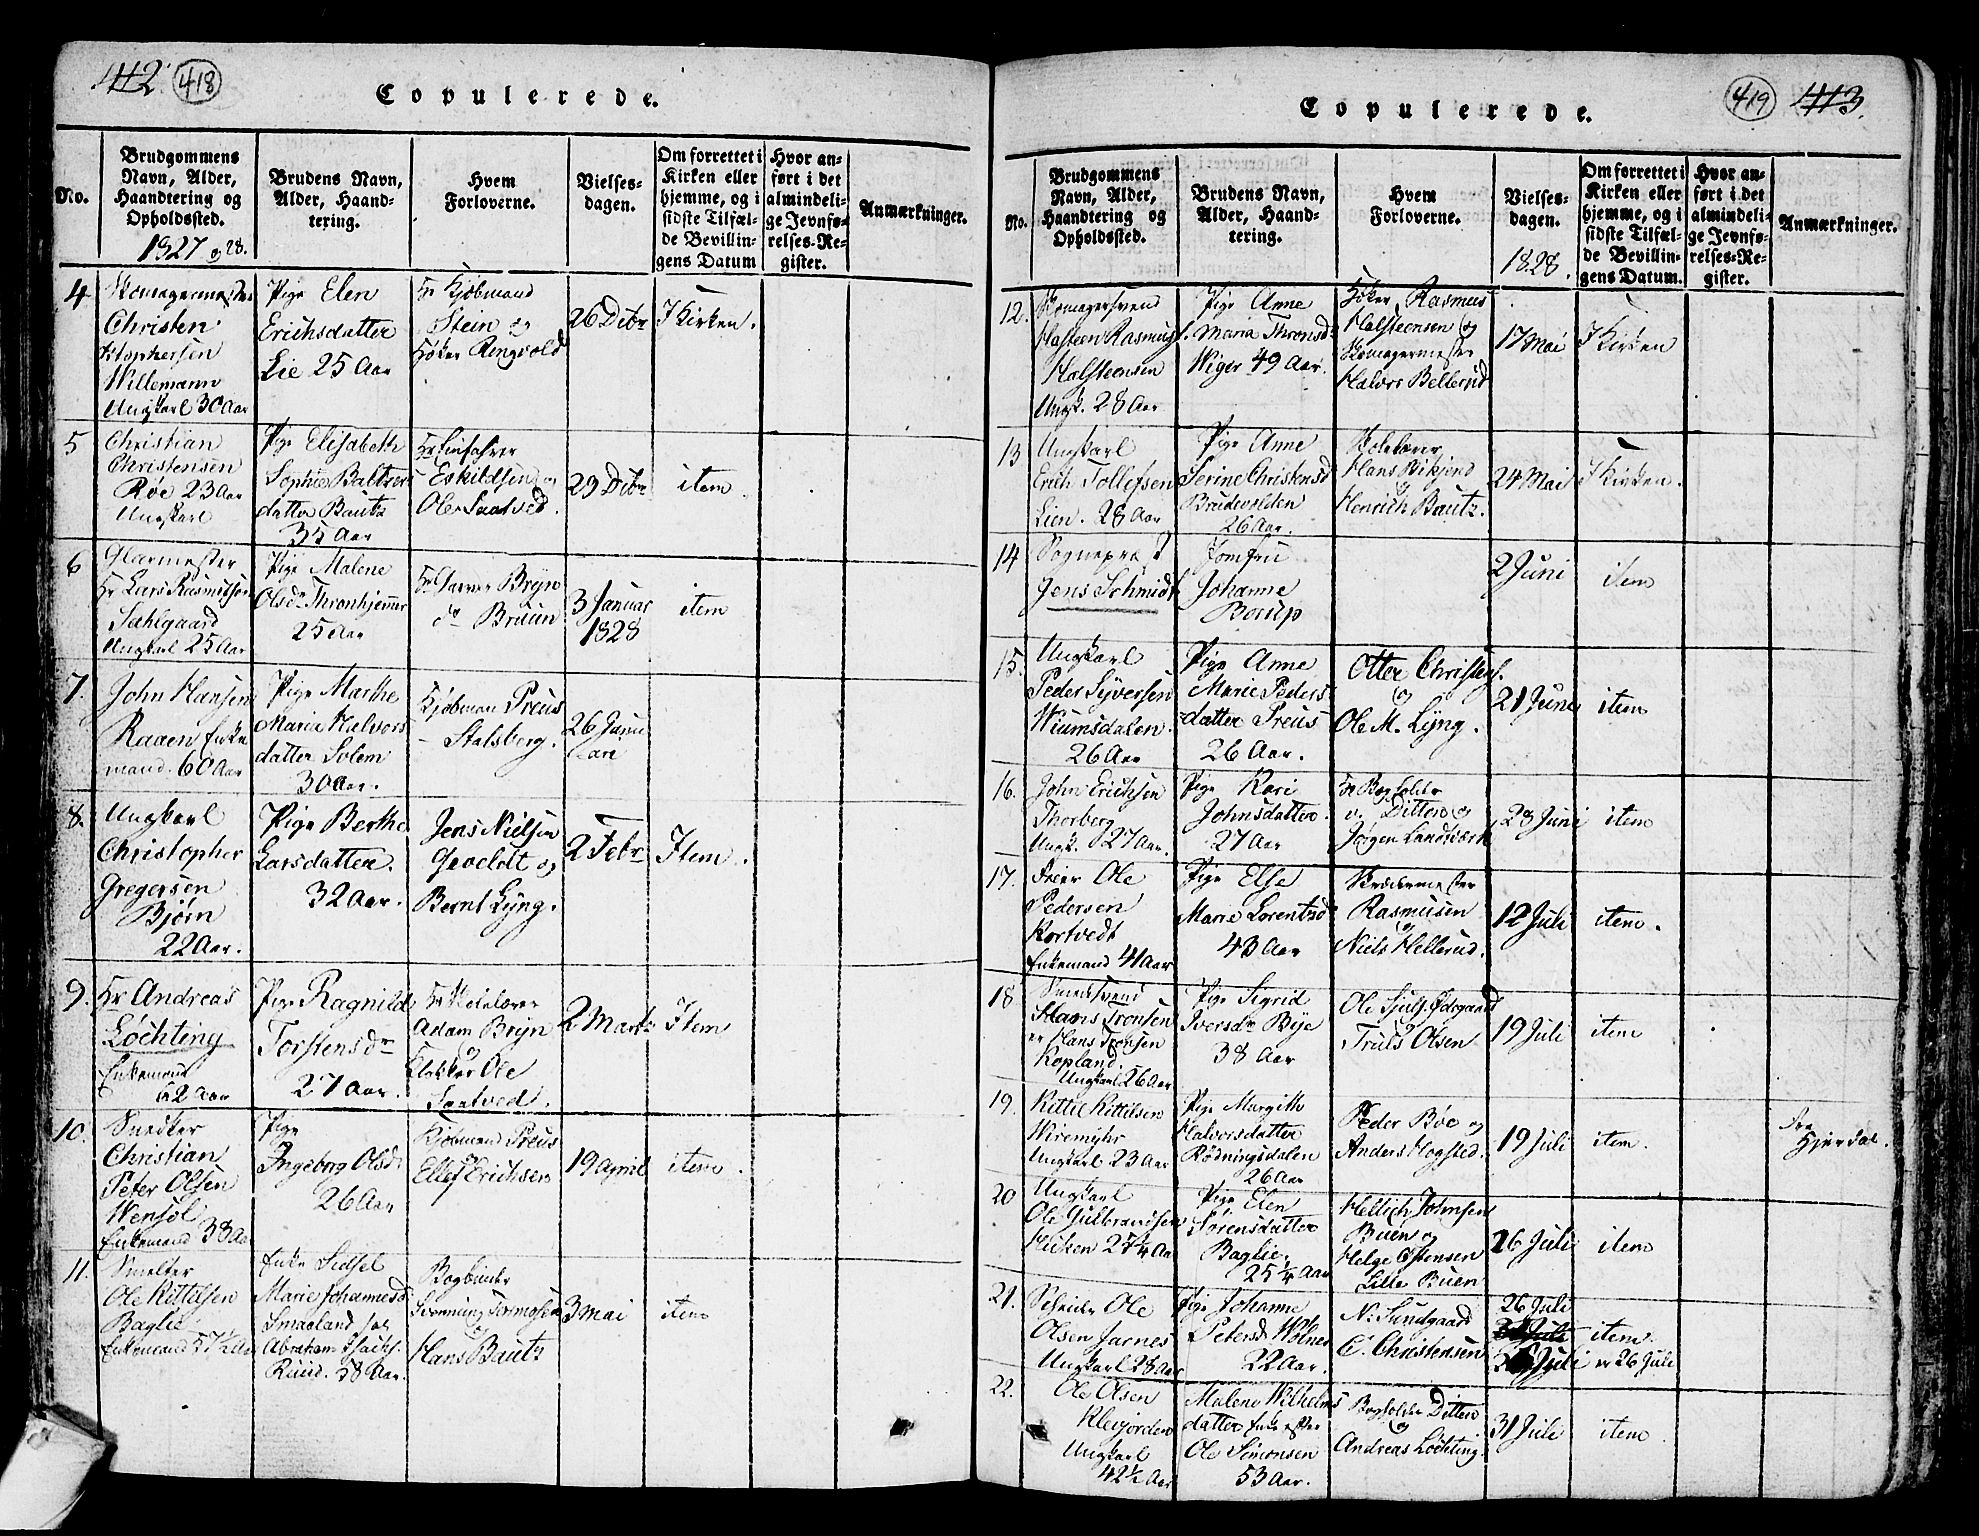 412. 418
Copulerede.
No.
Brudgommens
Navn, Alder,
Haandtering og
Opholdssted.
1827 og 28.
Brudens Navn,
Alder, Haand-
tering.
Hvem
Forloverne.
Vielses-
dagen.
Om forrettet i
Kirken eller
hjemme, og i
sidste Tilfæl-
de Bevillin-
gens Datum
Hvor an-
ført i det
almindeli-
ge Jevnfø-
relses-Re-
gister.
Anmærkninger.
4
Skomagermester
Christen
Willemann
Ungkarl 30 Aar
Pige Elen
Erichsdatter
Lie 25 Aar
Hr Kjøbmand
Stein og
Høker Ringvold
26 Dbr
I Kirken.
5
Christian
Christensen
Røe 23 Aar
Ungkarl
Pige Elisabeth
Sophie Baltzers
datter Bautz
35 Aar
Eskildsen og
Ole Saatved.
item.
6
Glarmester
Hr Lars Rasmussen
Sahlgaard
Ungkarl 25 Aar
Pige Malene
Olsdr Thronhjemmer
25 Aar
Bryn
dr Bruun
3 Januar
1828
item
7.
John Hansen
Raaen Enke
mand. 60 Aar
Pige Marthe
Maria Halvors
datter Solem
30 Aar.
Kjøbman Preus
Stalsberg.
26 Janu
are
8.
Ungkarl
Christopher
Gregersen
Bjørn
22 Aar.
Pige Berthe
Larsdatter.
32 Aar.
Jens Nielsen
Geveldt og
Bernt Lyng.
2 Febr
Item.
9.
Hr Andreas
Løchting
Enkemand
62 Aar
Pige Ragnild
Torstensdr
27 Aar.
Hr Skolelærer
Adam Bryn
og
Klokker Ole
Saatved.
2 Marts
Item
10.
Snedker
Christian
Peter Olsen
Wensøl
Enkemand 38 Aar
Pige
Ingeborg Olsdr
26 Aar
Kjøbmand Preus
og
Ellef Erichsen
19 April
item.
11.
Smelter
Ole Kittilsen
Baglie
Enkemand 57½ Aar
Enke Sidsel
Marie Johannesd
Smaeland
Abraham
Ruud. 58 Aar.
Bogbinder
Svenning Tormosen
og
Hans Bautz
3 Mai
item
419 413.
Copulerede.
No.
Brudgommens
Navn, Alder,
Haandtering og
Opholdssted.
Brudens Navn,
Alder, Haand-
tering.
Hvem
Forloverne.
Vielses-
dagen.
1828.
Om forrettet i
Kirken eller
hjemme, og i
sidste Tilfæl-
de Bevillin-
gens Datum.
Hvor an-
ført i det
almindeli-
ge Jevnfø-
relses-Re-
gister.
Anmærkninger.
12.
Skomagersvend
Halsteen Rasmus
Halsteensen
Ungk. 28 Aar
Pige Anne
Maria Thronsd
Wiger 49 Aar.
Høker Rasmus
Halsteensen og
Skomagermester
Halvor Bellerud
17 Mai
I Kirken
13
Ungkarl
Erich Tollefsen
Lien. 28 Aar
Pige Anne
Serine Christensd
Brudevolden
26 Aar.
Skolelærer
Hans Vikjend
og
Henrich Bautz.
24 Mai
I Kirken.
14
Sognepræst
Jens Schmidt
Jomfru
Johanne
Borup
2 Juni
item
15.
Ungkarl
Peder Syversen
Wiumsdalen.
26 Aar
Pige Anne
Marie Peders
datter Preus
26 Aar.
Otter Christens.
og
Ole M. Lyng.
21 Juni
item
16.
John Erichsen
Thorberg
Ungk. 27 Aar.
Pige Kari
Johnsdatter.
27 Aar
Hr Bogholder
v. Ditten og
Jørgen Landsverk
23 Juni
item
17.
Ole
Pedersen
Kortvedt
Enkemand 41 Aar
Pige Else
Marie Lorentzd
43 Aar
Skrædermester
Rasmusen
og
Niels Hellerud.
12 Juli
item.
18
Smedsvend
Hans Tronsen
er Hans Tronsen
Kopland.
Ungkarl 26 Aar
Pige Sigrid
Iversdr Bye
38 Aar
Ole Siuls. Ødegaard
og
Truls Olsen
19 Juli
item
19.
Kittil Kittilsen
Wiremyhr
Ungkarl 23 Aar
Pige Margith
Halvorsdatter
Rødningsdalen
26 Aar
Peder Bøe og
Anders Hogsted.
19 Juli
item.
fra
Hjerdal.
20
Ungkarl
Ole Gulbrandsen
Pige Elen
Sørensdatter
Baglie.
25¼ Aar
Hellich Johnsen
Buen og
Helge Ostensen
Lille Buen
26 Juli
item
21.
Ole
Olsen Jarnes
Ungkarl 28 Aar
Pige Johanne
Petersd Wolner
22 Aar.
N. Sundgaard
og
C. Christensen
26 Juli
item.
er 26 Juli
22.
Ole Olsen
Klevjorden
Ungkarl
42½ Aar
Malene Wilhelms
datter Enke efter
Ole Simonsen
53 Aar.
Bogholder Ditten
og
Andreas Løchting.
31 Juli
item